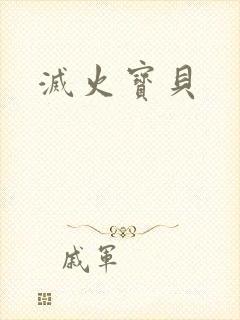 滅火寶貝
戚軍